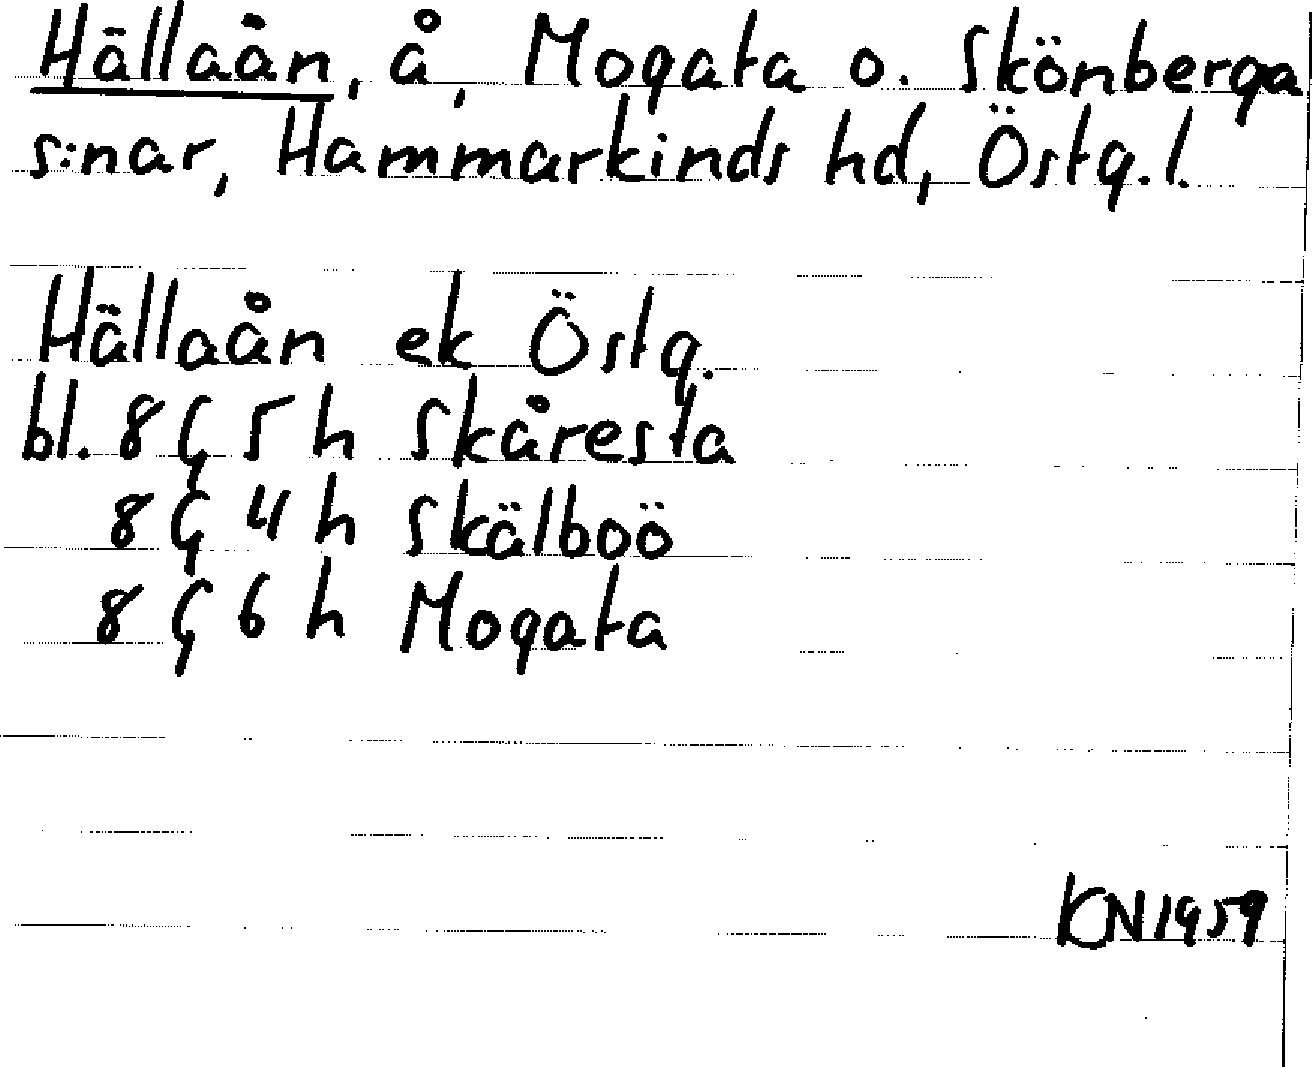 Hällaån, å, Mogata o. Skönberga
s:nar, Hammarkinds hd, Östg. l.
Hällaån ek Östg.
bl. 8 G 5 h Skåresta
8 G 4 h Skälboö
8 G 6 h Mogata
KN 1959